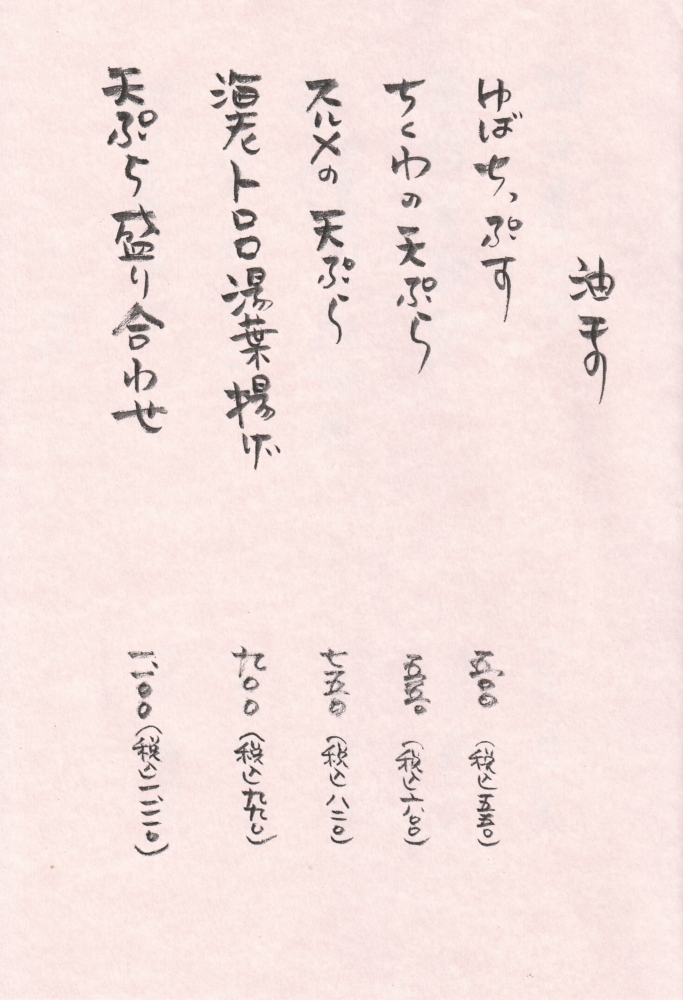 油もの
ゆばちっぷす 五〇〇(税込五五〇)
ちくわの天ぷら 五五〇(税込六〇〇)
スルメの天ぷら 七五〇(税込八二〇)
海老トロロ湯葉揚げ 九〇〇(税込九九〇)
天ぷら盛り合わせ 一、一〇〇(税込一、二一〇)